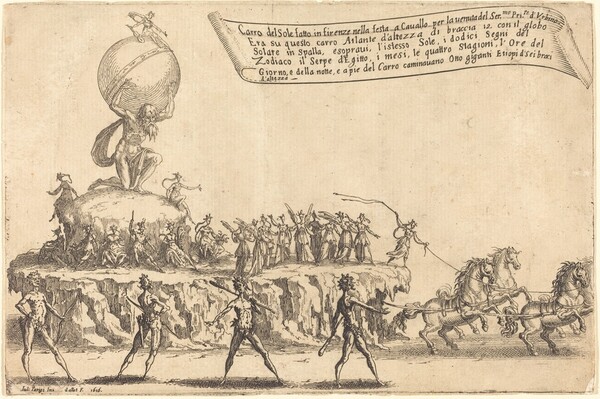 Carro del Sole fatto in firenze nella festa a Cauallo, per la uenuta del Ser.mo Pri.pe d'Vrbino
Era su questo carro Atlante d'altezza di braccia 12. con il globo
Solare in Spalla, esoprauj, l'istesso Sole, i dodici Segni del
Zodiaco il Serpe d'Egitto, i mesi, le quattro Stagioni, l'Ore del
Giorno, e della notte, e a pie del Carro caminauano Otto giganti Etiopi d'sei braci
d'altezza
Iuli Parigi Inu. Callot F. 1616.